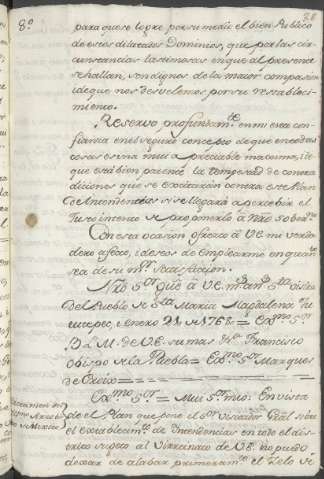 8º
para que se logre por su medio el bien Publico
de estos dilatados Dominios, que por las cir-
cunstancias lastimosas en que al presente
se hallan, son dignos de la maior compasion
i de que nos desvelemos por su restableci-
miento.
Reservo profundamte en mi esta con-
fianza en el seguro concepto de que en todas
cosas es una mui apreciable maxima, i de
que està bien patente la tempestad de contra-
diciones que se excitaràn contra este Plan
de Intendencias si se llegarà a percebir el
Justo intento de proponerlo à Nrô Soberno.
Con esta ocasion ofrezco à V.E. mi verda-
dero afecto, i deseos de emplearme en quan-
to sea de su mor satisfaccion.
Nrô Sor gue à V.E. ms as Sta visita
del Pueblo de Sta Maria Magdalena
i enero 21 de 1768 = Exmo Sor
B L M. de V.E. su mas Francisco
Obispo de la Puebla = Exmo Sor Marques
de Croix =
Exmo Sor = Mui Sor mio: En vista
de el Plan que pone el Sor Visitador Gral sobre
el establecimto de Intendencias en todo el dis-
trito sugeto al Virreinato de V.E. no puedo
dexar de alabar primeramte el zelo de